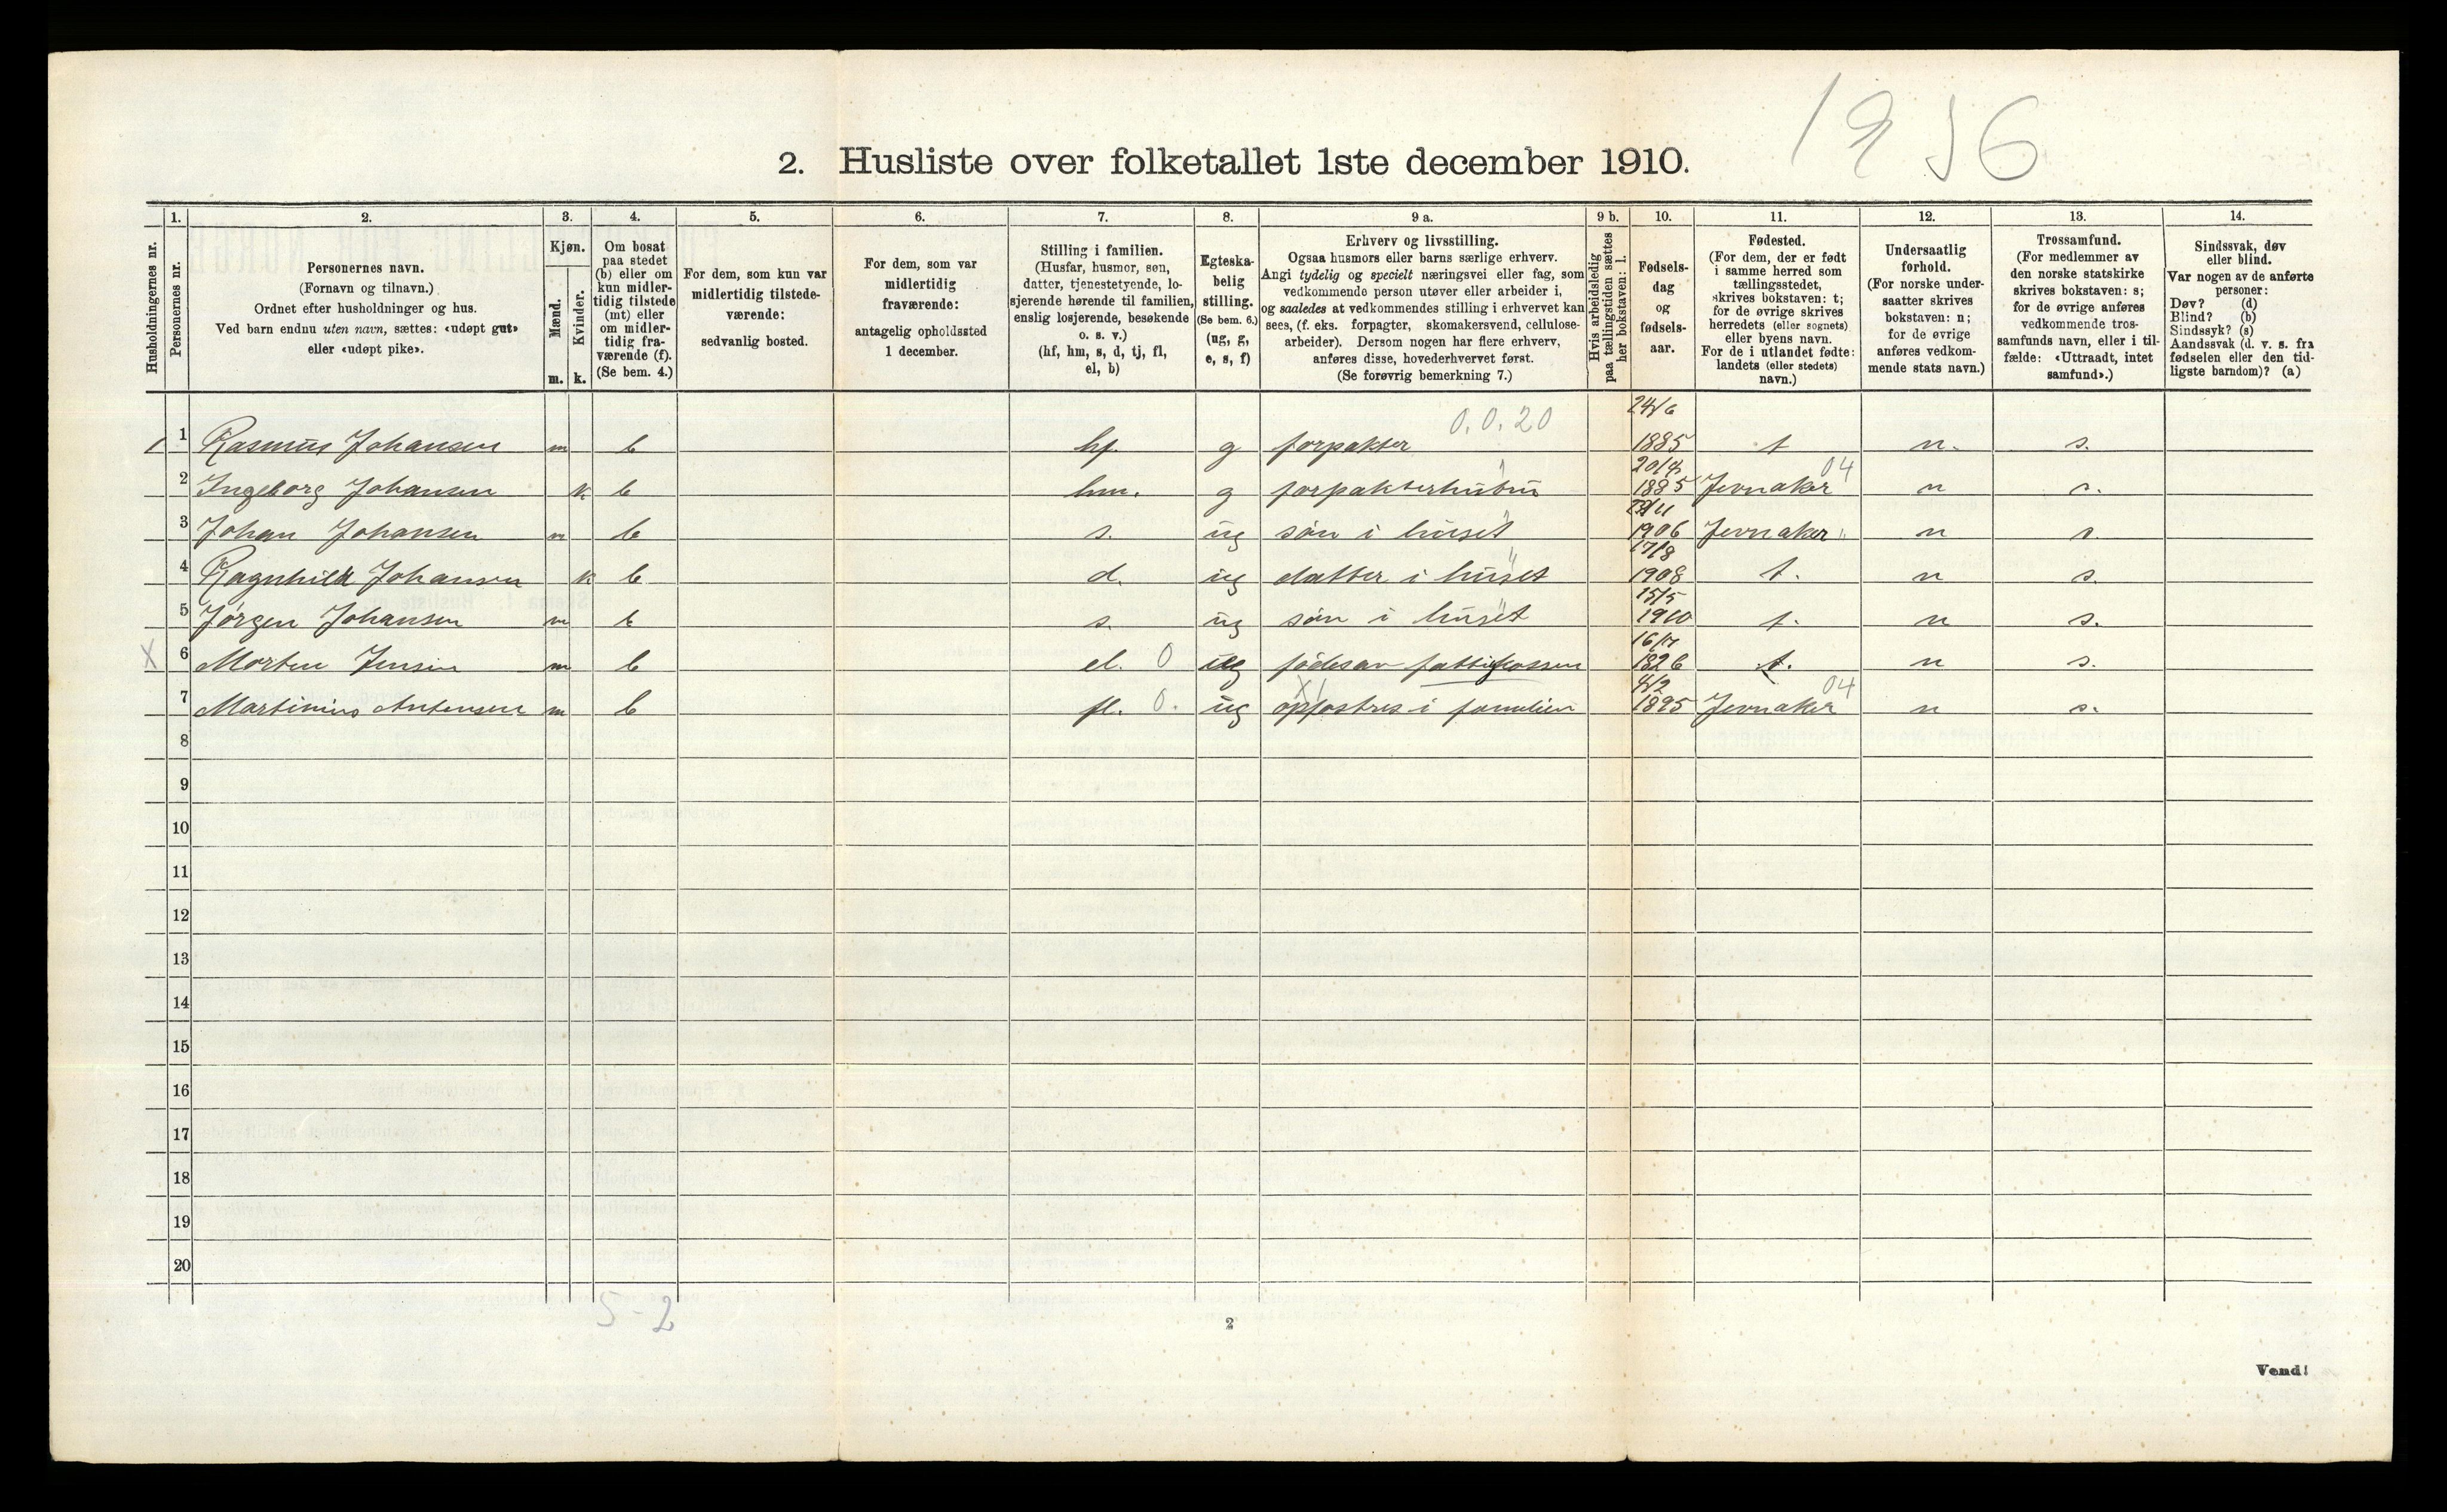 1256
2. Husliste over folketallet 1ste december 1910.
Husholdningernes nr.
1. Personernes nr.
2. Personernes navn.
(Fornavn og tilnavn.)
Ordnet efter husholdninger og hus.
Ved barn endnu uten navn, sættes: «udøpt gut»
eller «udøpt pike».
3. Kjøn.
Mænd. m.
Kvinder. k.
4. Om bosat
paa stedet
(b) eller om
kun midler-
tidig tilstede
(mt) eller
om midler-
tidig fra-
værende (f).
(Se bem. 4.)
5. For dem, som kun var
midlertidig tilstede-
værende:
sedvanlig bosted.
6. For dem, som var
midlertidig
fraværende:
antagelig opholdssted
1 december.
7. Stilling i familien.
(Husfar, husmor, søn,
datter, tjenestetyende, lo-
sjerende hørende til familien,
enslig losjerende, besøkende
o. s. v.)
(hf, hm, s, d, tj, fl,
el, b)
8. Egteska-
belig
stilling.
(Se bem. 6.)
(ug, g,
e, s, f)
9 a. Erhverv og livsstilling.
Ogsaa husmors eller barns særlige erhverv.
Angi tydelig og specielt næringsvei eller fag, som
vedkommende person utøver eller arbeider i,
og saaledes at vedkommendes stilling i erhvervet kan
sees, (f. eks. forpagter, skomakersvend, cellulose-
arbeider). Dersom nogen har flere erhverv,
anføres disse, hovederhvervet først.
(Se forøvrig bemerkning 7.)
9 b. Hvis arbeidsledig
paa tællingstiden sættes
her bokstaven: l.
10. Fødsels-
dag
og
fødsels-
aar.
11. Fødested.
(For dem, der er født
i samme herred som
tællingsstedet,
skrives bokstaven: t;
for de øvrige skrives
herredets (eller sognets)
eller byens navn.
For de i utlandet fødte:
landets (eller stedets)
navn.)
12. Undersaatlig
forhold.
(For norske under-
saatter skrives
bokstaven: n;
for de øvrige
anføres vedkom-
mende stats navn.)
13. Trossamfund.
(For medlemmer av
den norske statskirke
skrives bokstaven: s;
for de øvrige anføres
vedkommende tros-
samfunds navn, eller i til-
fælde: «Uttraadt, intet
samfund».)
14. Sindssvak, døv
eller blind.
Var nogen av de anførte
personer:
Døv? (d)
Blind? (b)
Sindssyk? (s)
Aandssvak (d. v. s. fra
fødselen eller den tid-
ligste barndom)? (a)
1 1 Rasmus Johansen m b hf. g forpakter 0.0.20 24/6 1885 t n. s.
2 Ingeborg Johansen k b hm. g forpakterhustru 1885 Jevnaker 04 n s.
3 Johan Johansen m b s. ug søn i huset 1906 Jevnaker n s.
4 Ragnhild Johansen k b d. ug datter i huset 17/8 1908 t. n s.
5 Jørgen Johansen m b s. ug søn i huset 15/5 1910 t. n s.
X 6 Morten Jensen m b el. 0 ug fødes av fattigkassen 1826 t. n s.
7 Martinius Antonsen m b fl. 0. ug opfostres i familien 4/2 1895 Jevnaker 04 n s.
8
9
10
11
12
13
14
15
16
17
18
19
20
5-2
2
Vend!